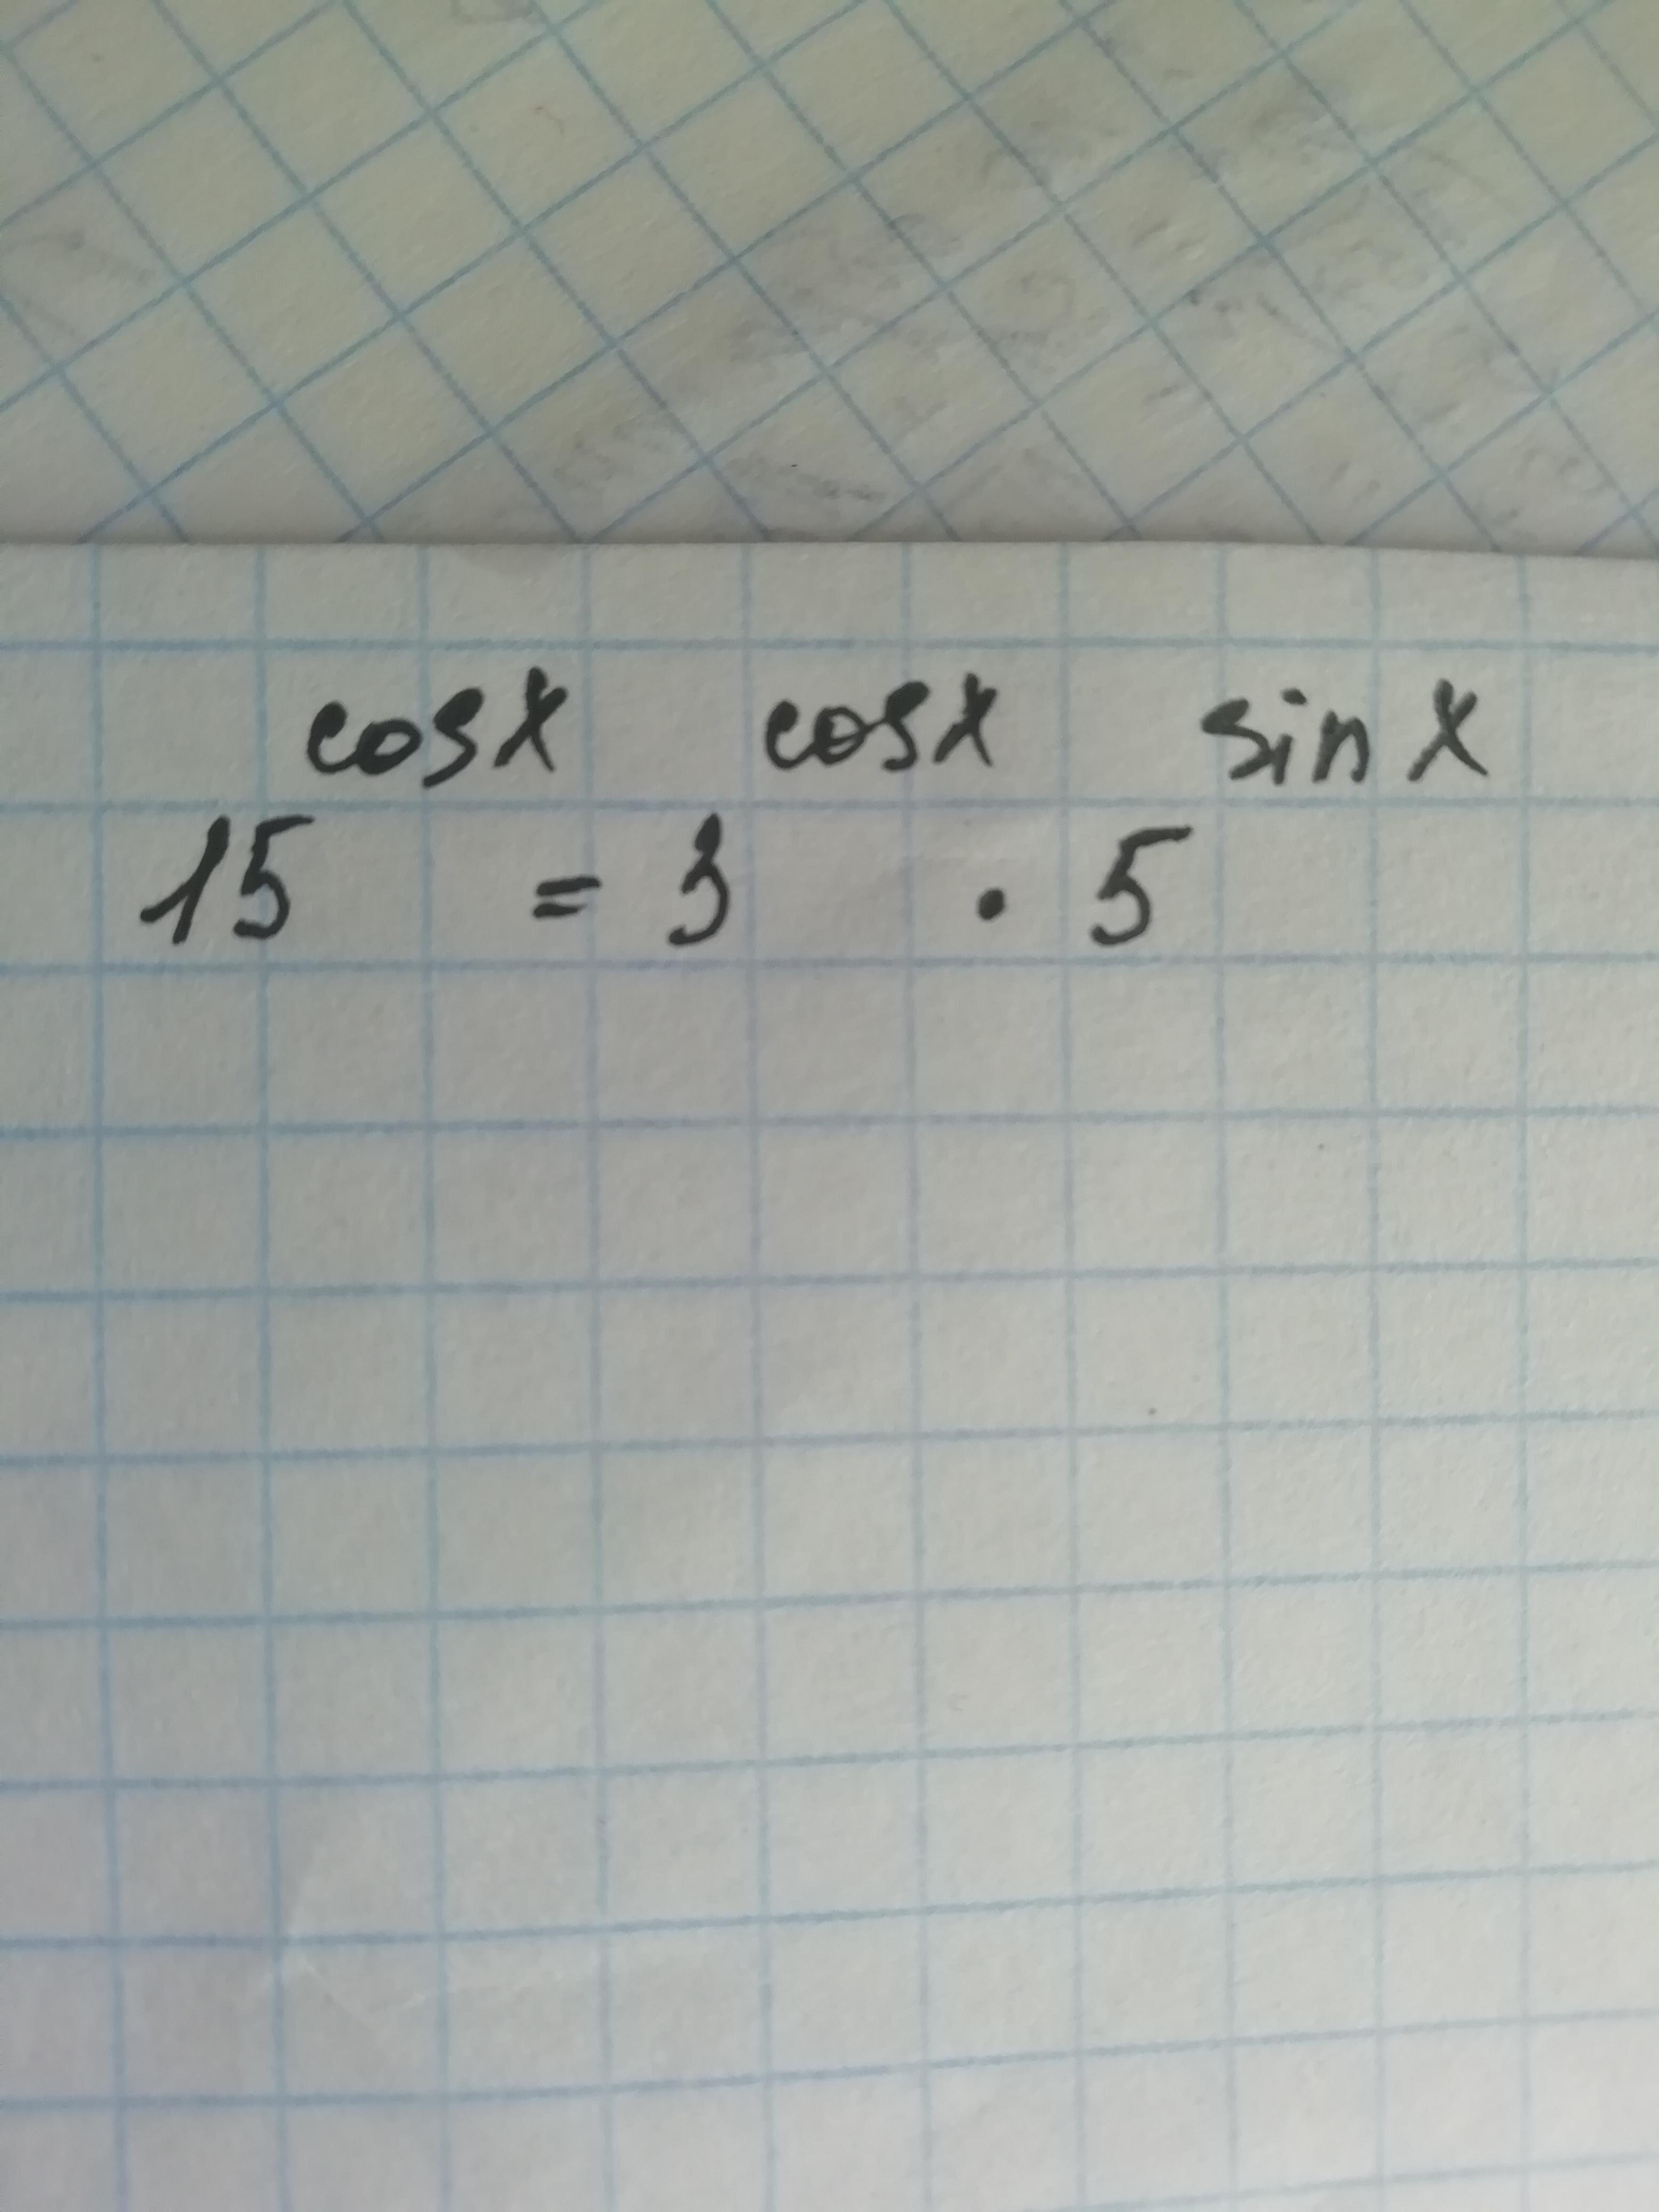 15^cosx = 3^cosx · 5^sinx